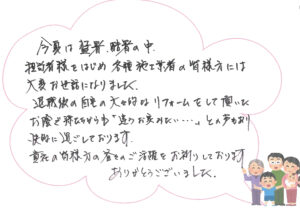 今夏は猛暑、酷暑の中
担当者様をはじめ 各種施工業者の皆様方には
大変お世話になりました。
退職後の自宅の大々的なリフォームをして頂いた
お蔭で 「違うお家みたい・・・」との声もあり
快適に過ごしております。
貴社の皆様方の益々のご活躍をお祈りしております
ありがとうございました。